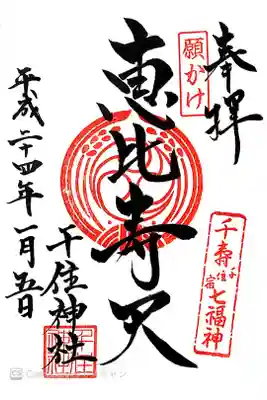 奉拝
願かけ
千寿七福神
千住宿
恵比寿天
千住神社
平成二十四年一月五日